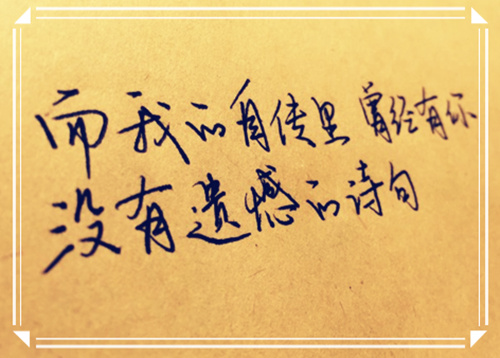 而我的自传里曾经有你
没有遗憾的诗句